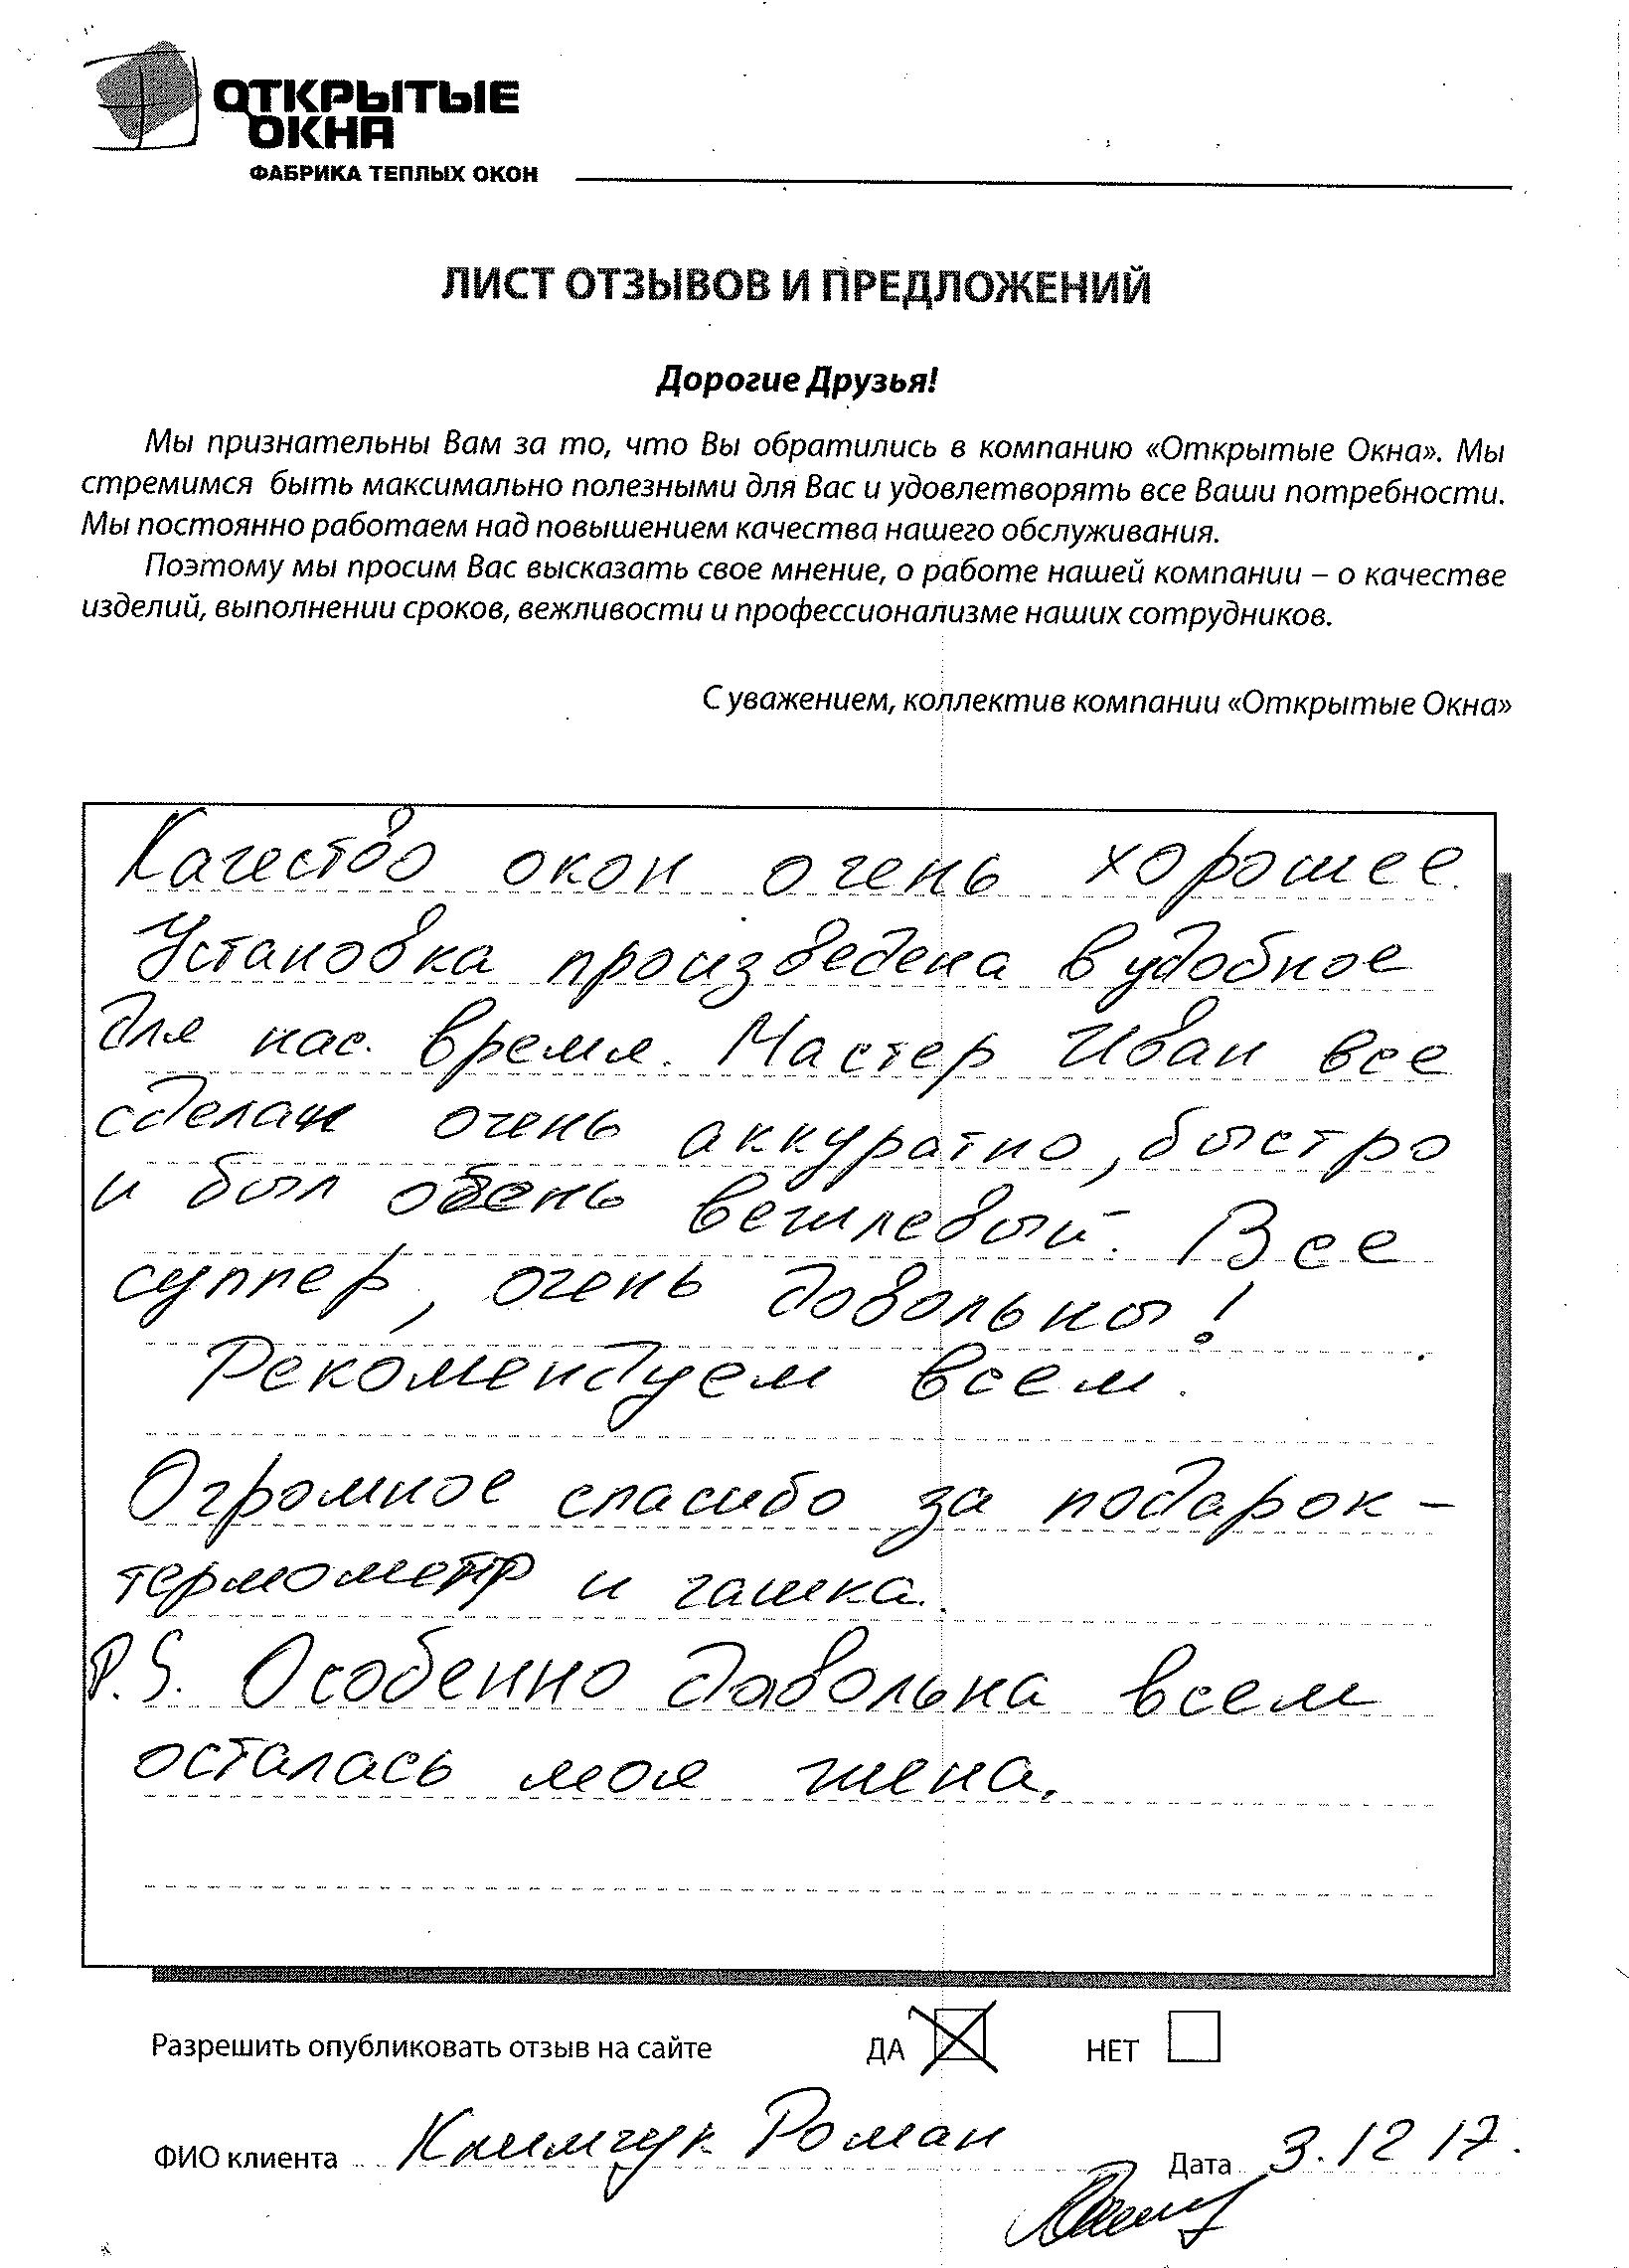 ОТКРЫТЫЕ
ОКНА
ФАБРИКА ТЕПЛЫХ ОКОН
ЛИСТ ОТЗЫВОВ И ПРЕДЛОЖЕНИЙ
Дорогие Друзья!
Мы признательны Вам за то, что Вы обратились в компанию «Открытые Окна». Мы
стремимся быть максимально полезными для Вас и удовлетворять все Ваши потребности.
Мы постоянно работаем над повышением качества нашего обслуживания.
Поэтому мы просим Вас высказать свое мнение, о работе нашей компании – о качестве
изделий, выполнении сроков, вежливости и профессионализме наших сотрудников.
С уважением, коллектив компании «Открытые Окна»
Качество окон очень хорошее.
Установка произведена в удобное
для нас. время. Мастер Иван все
сделал очень аккуратно, быстро
и был очень вежлевый. Все
суппер, очень довольны!
Рекомендуем всем.
Огромное спасибо за подарок –
термометр и чашка.
P.S. Особенно давольна всем
осталась моя жена.
Разрешить опубликовать отзыв на сайте ДА НЕТ
ФИО клиента Климчук Роман Дата 3.12 17.